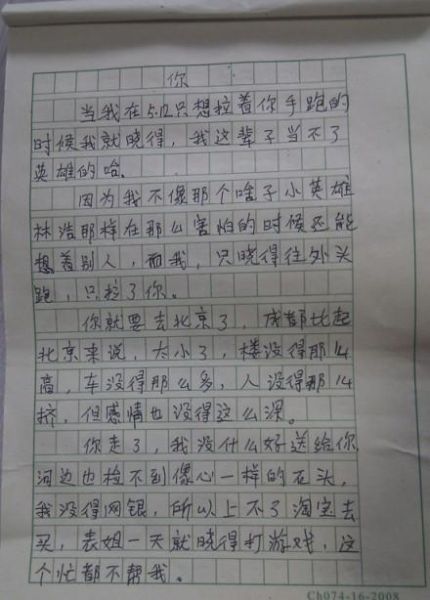 你
当我在5.12只想拉着你手跑的
时候我就晓得，我这辈子当不了
英雄的哈。
因为我不像那个啥子小英雄
林浩那样在那么害怕的时候还能
想着别人，而我，只晓得往外头
跑，只拉了你。
你就要去北京了，成都比起
北京来说，太小了，楼没得那么
高，车没得那么多，人没得那么
挤，但感情也没得这么深。
你走了，我没什么好送给你
河边也捡不到像心一样的石头，
我没得网银，所以上不了淘宝去
买，表姐一天就晓得打游戏，这
个忙都不帮我。
Ch074-16-2008